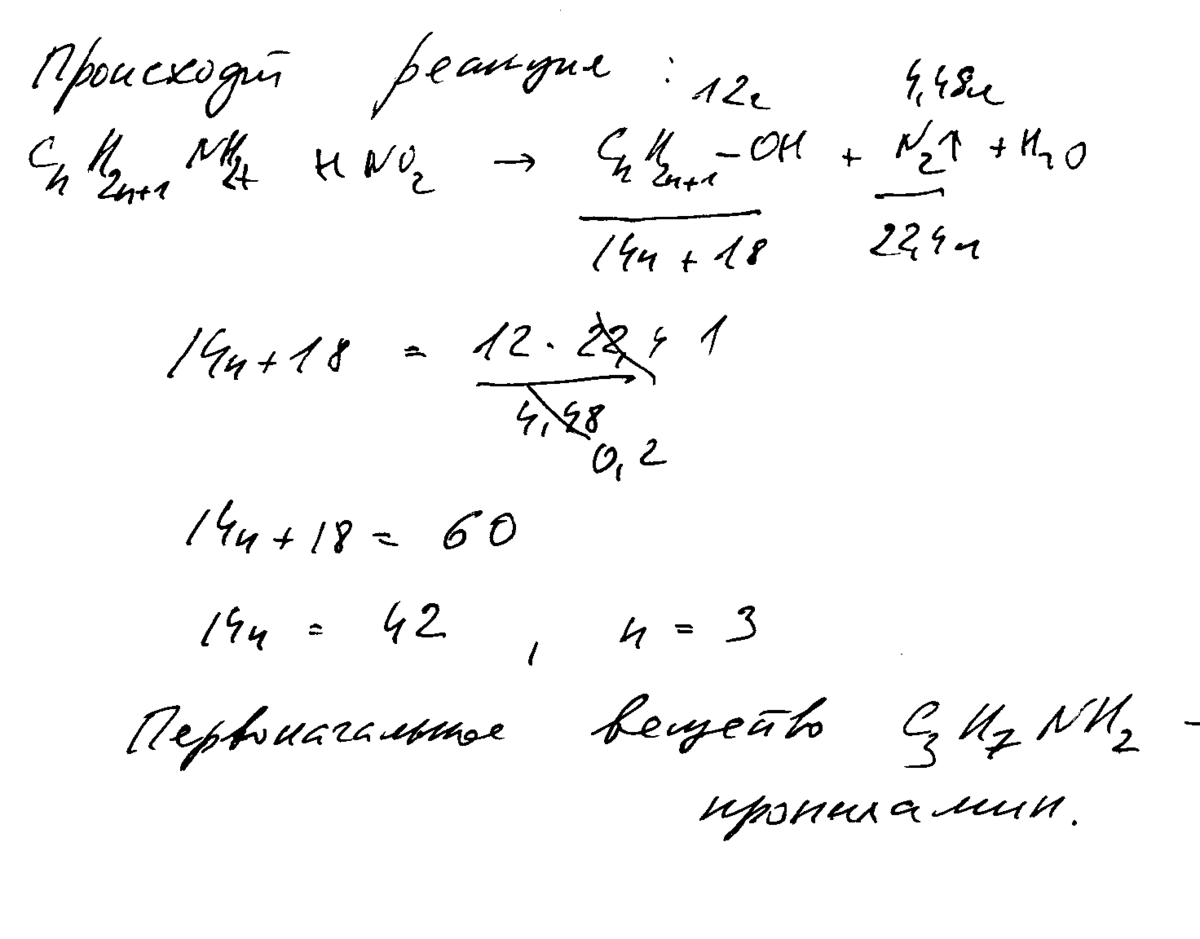 Происходит реакция :
12г 4,48л
CₙH₂ₙ₊₁NH₂+ HNO₂ → CₙH₂ₙ₊₁-OH + N₂↑ + H₂O
14n + 18 22,4л
14n + 18 = 12 · 22,4 1
4,48
0,2
14n + 18 = 60
14n = 42 , n = 3
Первоначальное вещество C₃H₇NH₂ -
пропиламин.